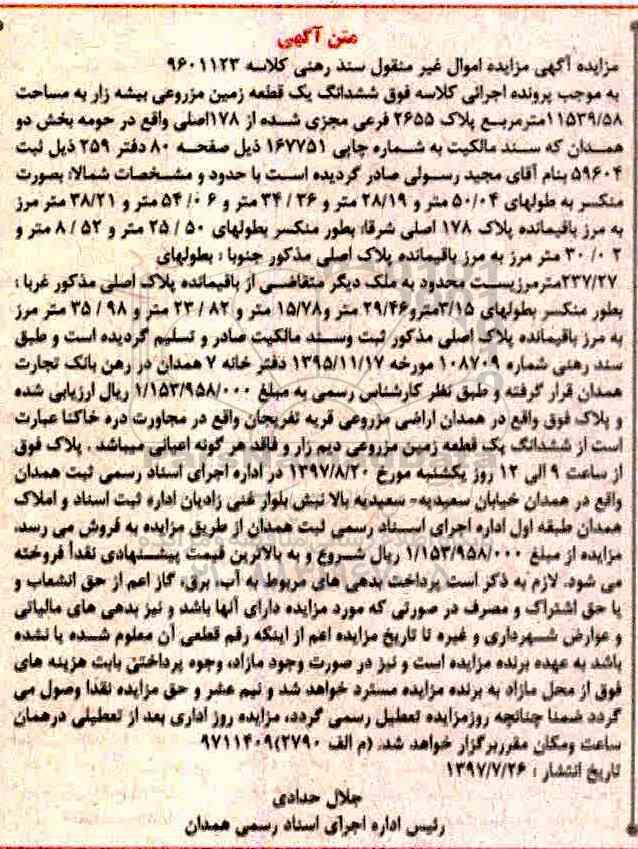 متن آگهی
مزایده آگهی مزایده اموال غیر منقول سند رهنی کلاسه ۹۶۰۱۱۲۳
به موجب پرونده اجرائی کلاسه فوق ششدانگ یک قطعه زمین مزروعی بیشه زار به مساحت
۱۱۵۳۹/۵۸مترمربع پلاک ۲۶۵۵ فرعی مجزی شده از ۱۷۸اصلی واقع در حومه بخش دو
همدان که سند مالکیت به شماره چاپی ۱۶۷۷۵۱ ذیل صفحه ۸۰ دفتر ۲۵۹ ذیل ثبت
۵۹۶۰۴ بنام آقای مجید رسولی صادر گردیده است با حدود و مشخصات شمالا: بصورت
منکسر به طولهای ۵۰/۰۴ متر و ۲۸/۱۹ متر و ۳۶ / ۳۴ متر و ۶ ۰/ ۵۴ متر و ۳۸/۲۱ متر مرز
به مرز باقیمانده پلاک ۱۷۸ اصلی شرقا: بطور منکسر بطولهای ۵۰ / ۲۵ متر و ۵۲ / ۸ متر و
۲ ۰/ ۳۰ متر مرز به مرز باقیمانده پلاک اصلی مذکور جنوبا : بطولهای
۲۳۷/۲۷مترمرزیست محدود به ملک دیگر متقاضی از باقیمانده پلاک اصلی مذکور غربا :
بطور منکسر بطولهای ۳/۱۵مترو۲۹/۴۶ متر و۱۵/۷۸ متر و ۸۲ / ۲۳ متر و ۹۸ / ۳۵ متر مرز
به مرز باقیمانده پلاک اصلی مذکور ثبت وسند مالکیت صادر و تسلیم گردیده است و طبق
سند رهنی شماره ۱۰۸۷۰۹ مورخه ۱۳۹۵/۱۱/۱۷ دفتر خانه ۷ همدان در رهن بانک تجارت
همدان قرار گرفته و طبق نظر کارشناس رسمی به مبلغ ۱/۱۵۳/۹۵۸/۰۰۰ ریال ارزیابی شده
و پلاک فوق واقع در همدان اراضی مزروعی قریه تفریجان واقع در مجاورت دره خاکتا عبارت
است از ششدانگ یک قطعه زمین مزروعی دیم زار و فاقد هر گونه اعیانی میباشد . پلاک فوق
از ساعت ۹ الی ۱۲ روز یکشنبه مورخ ۱۳۹۷/۸/۲۰ در اداره اجرای اسناد رسمی ثبت همدان
واقع در همدان خیابان سعیدیه- سعیدیه بالا نبش بلوار غنی زادیان اداره ثبت اسناد و املاک
همدان طبقه اول اداره اجرای اسناد رسمی ثبت همدان از طریق مزایده به فروش می رسد.
مزایده از مبلغ ۱/۱۵۳/۹۵۸/۰۰۰ ریال شروع و به بالاترین قیمت پیشنهادی نقداً فروخته
می شود. لازم به ذکر است پرداخت بدهی های مربوط به آب، برق، گاز اعم از حق انشعاب و
یا حق اشتراک و مصرف در صورتی که مورد مزایده دارای آنها باشد و نیز بدهی های مالیاتی
و عوارض شهرداری و غیره تا تاریخ مزایده اعم از اینکه رقم قطعی آن معلوم شده یا نشده
باشد به عهده برنده مزایده است و نیز در صورت وجود مازاد، وجوه پرداختی بابت هزینه های
فوق از محل مازاد به برنده مزایده مسترد خواهد شد و نیم عشر و حق مزایده نقدا وصول می
گردد ضمنا چنانچه روزمزایده تعطیل رسمی گردد، مزایده روز اداری بعد از تعطیلی درهمان
ساعت ومکان مقرربرگزار خواهد شد. (م الف ۲۷۹۰)۹۷۱۱۴۰۹
تاریخ انتشار : ۱۳۹۷/۷/۲۶
جلال حدادی
رئیس اداره اجرای اسناد رسمی همدان